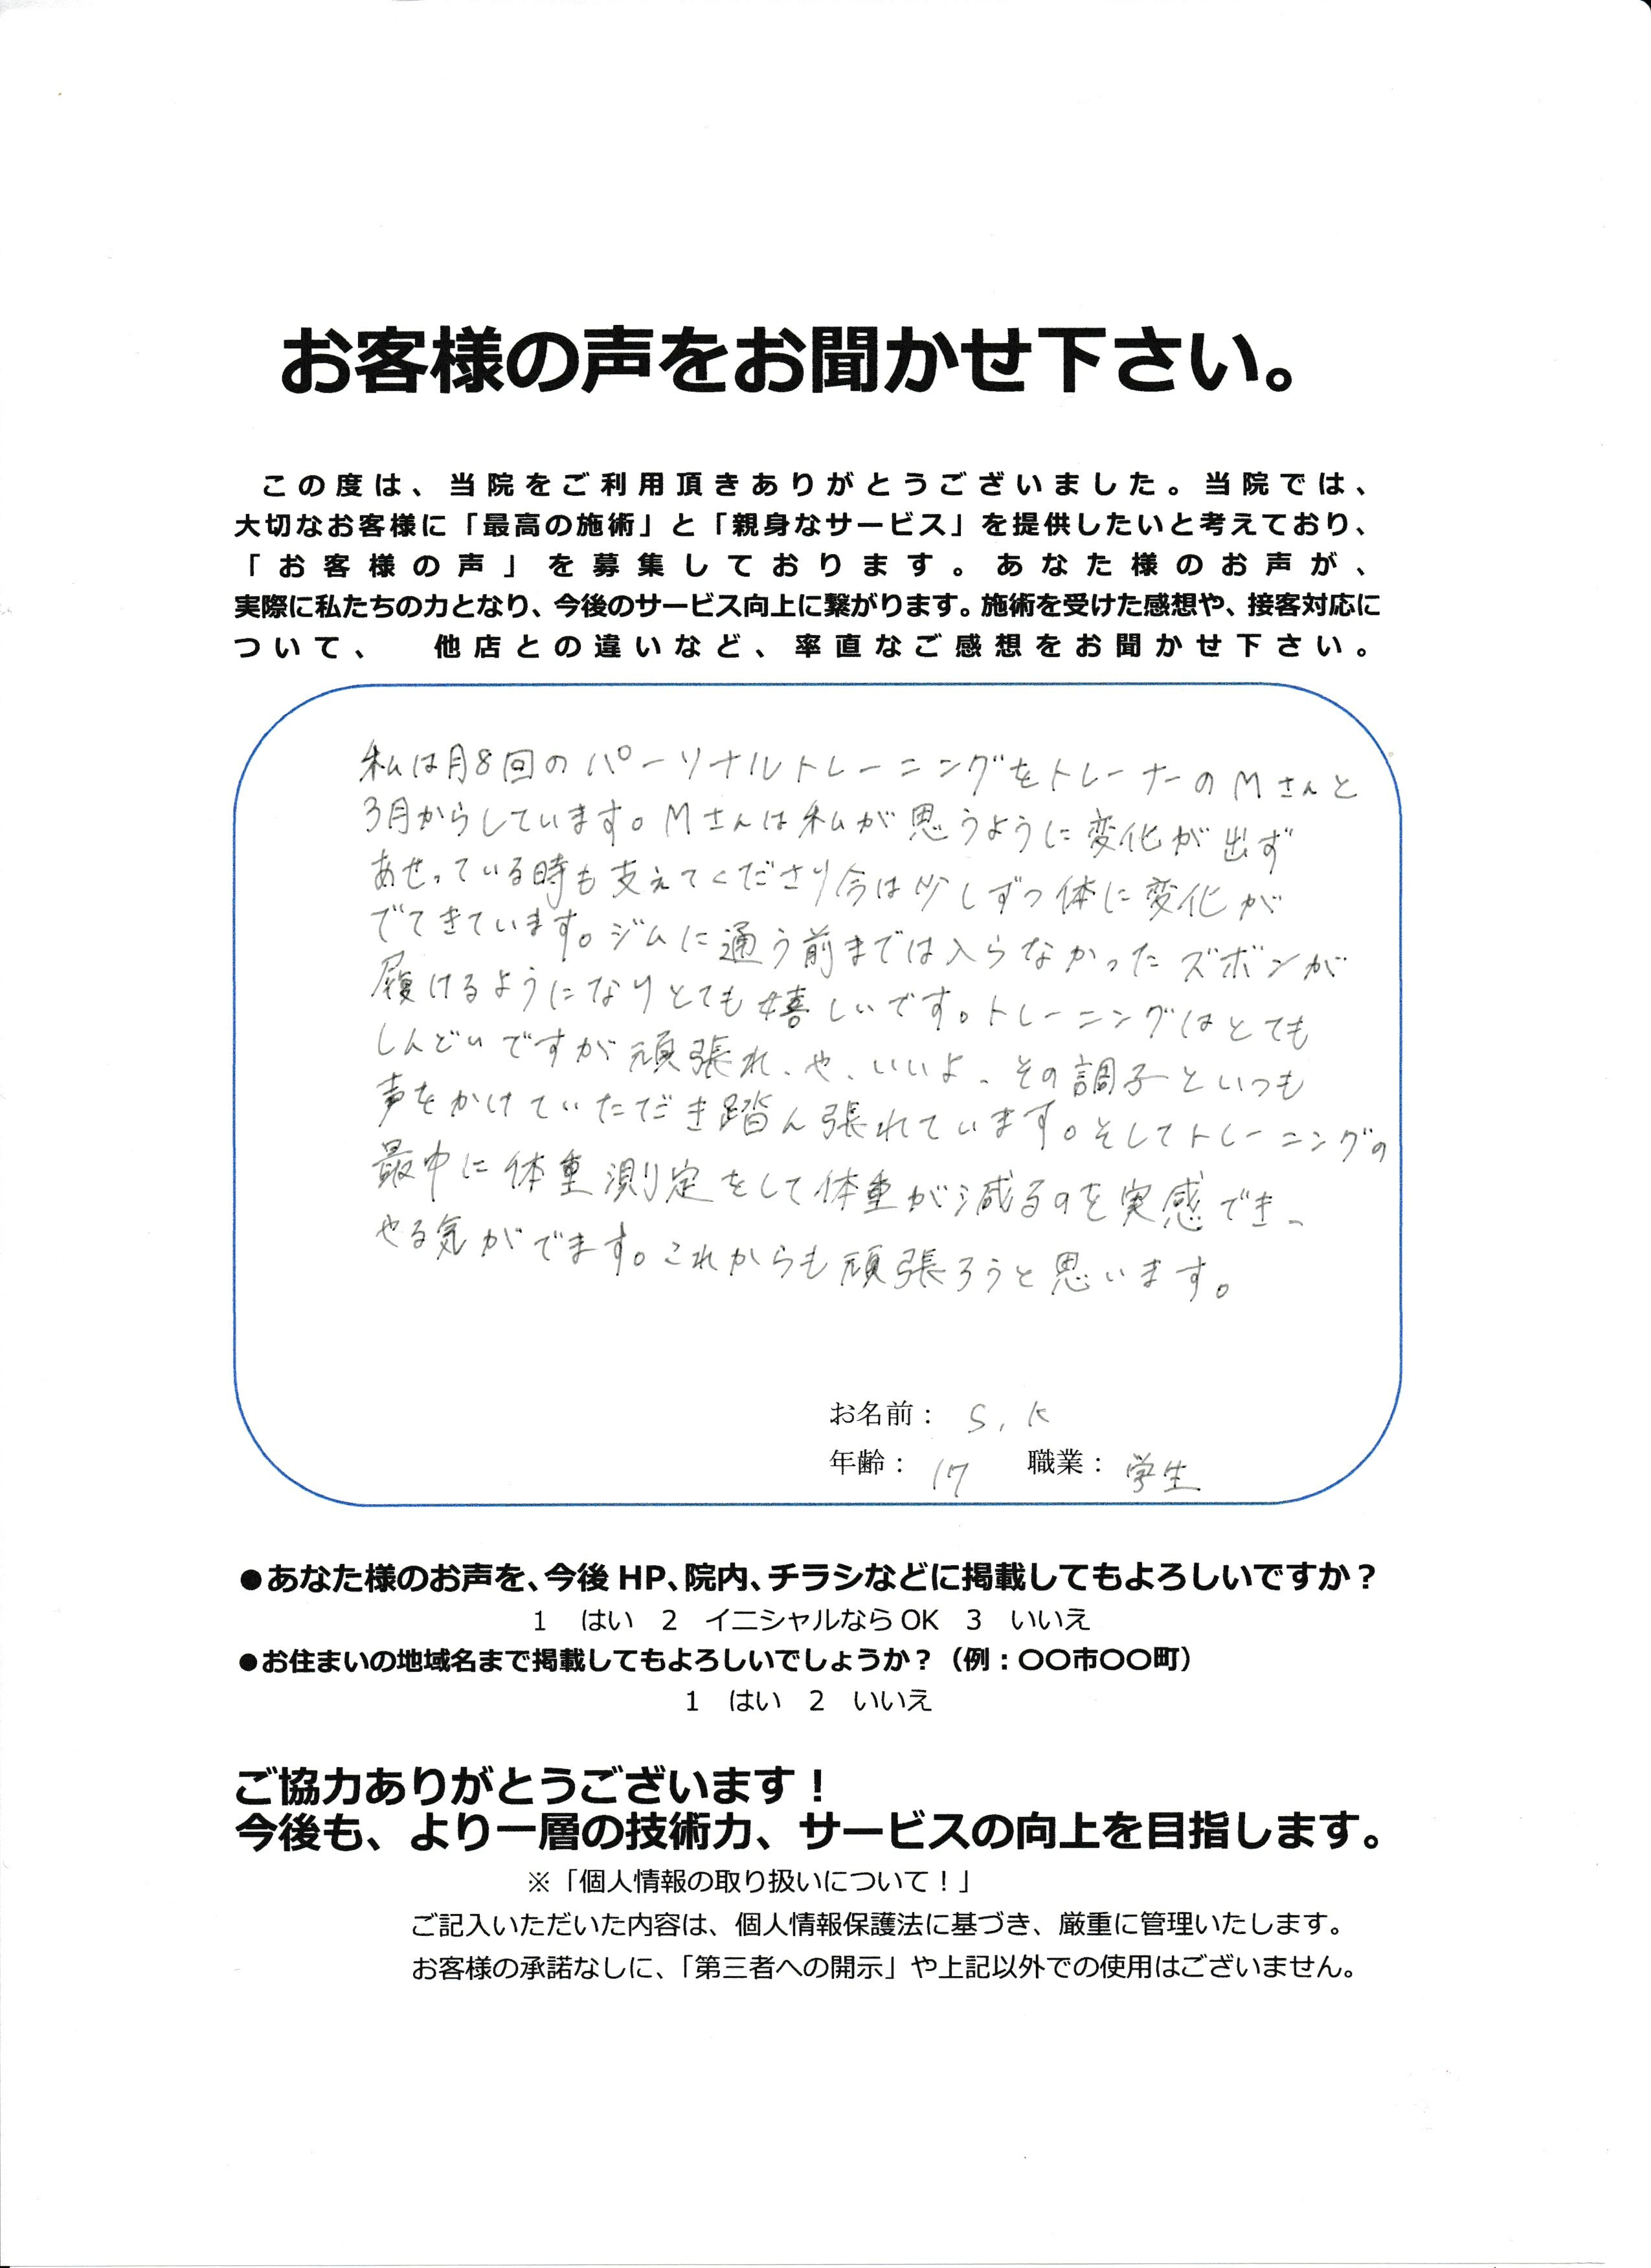 お客様の声をお聞かせ下さい。
この度は、当院をご利用頂きありがとうございました。当院では、
大切なお客様に「最高の施術」と「親身なサービス」を提供したいと考えており、
「お客様の声」を募集しております。あなた様のお声が、
実際に私たちの力となり、今後のサービス向上に繋がります。施術を受けた感想や、接客対応に
ついて、　他店との違いなど、率直なご感想をお聞かせ下さい。
私は月8回のパーソナルトレーニングをトレーナーのMさんと
3月からしています。Mさんは私が思うように変化が出ず
あせっている時も支えてくださり今は少しずつ体に変化が
でてきています。ジムに通う前までは入らなかったズボンが
履けるようになりとても嬉しいです。トレーニングはとても
しんどいですが頑張れ、や、いいよ、その調子といつも
声をかけていただき踏ん張れています。そしてトレーニングの
最中に体重測定をして体重が減るのを実感でき、
やる気がでます。これからも頑張ろうと思います。
お名前： S.K
年齢： 17　職業： 学生
●あなた様のお声を、今後 HP、院内、チラシなどに掲載してもよろしいですか？
1　はい　2　イニシャルなら OK　3　いいえ
●お住まいの地域名まで掲載してもよろしいでしょうか？（例：〇〇市〇〇町）
1　はい　2　いいえ
ご協力ありがとうございます！
今後も、より一層の技術力、サービスの向上を目指します。
※「個人情報の取り扱いについて！」
ご記入いただいた内容は、個人情報保護法に基づき、厳重に管理いたします。
お客様の承諾なしに、「第三者への開示」や上記以外での使用はございません。